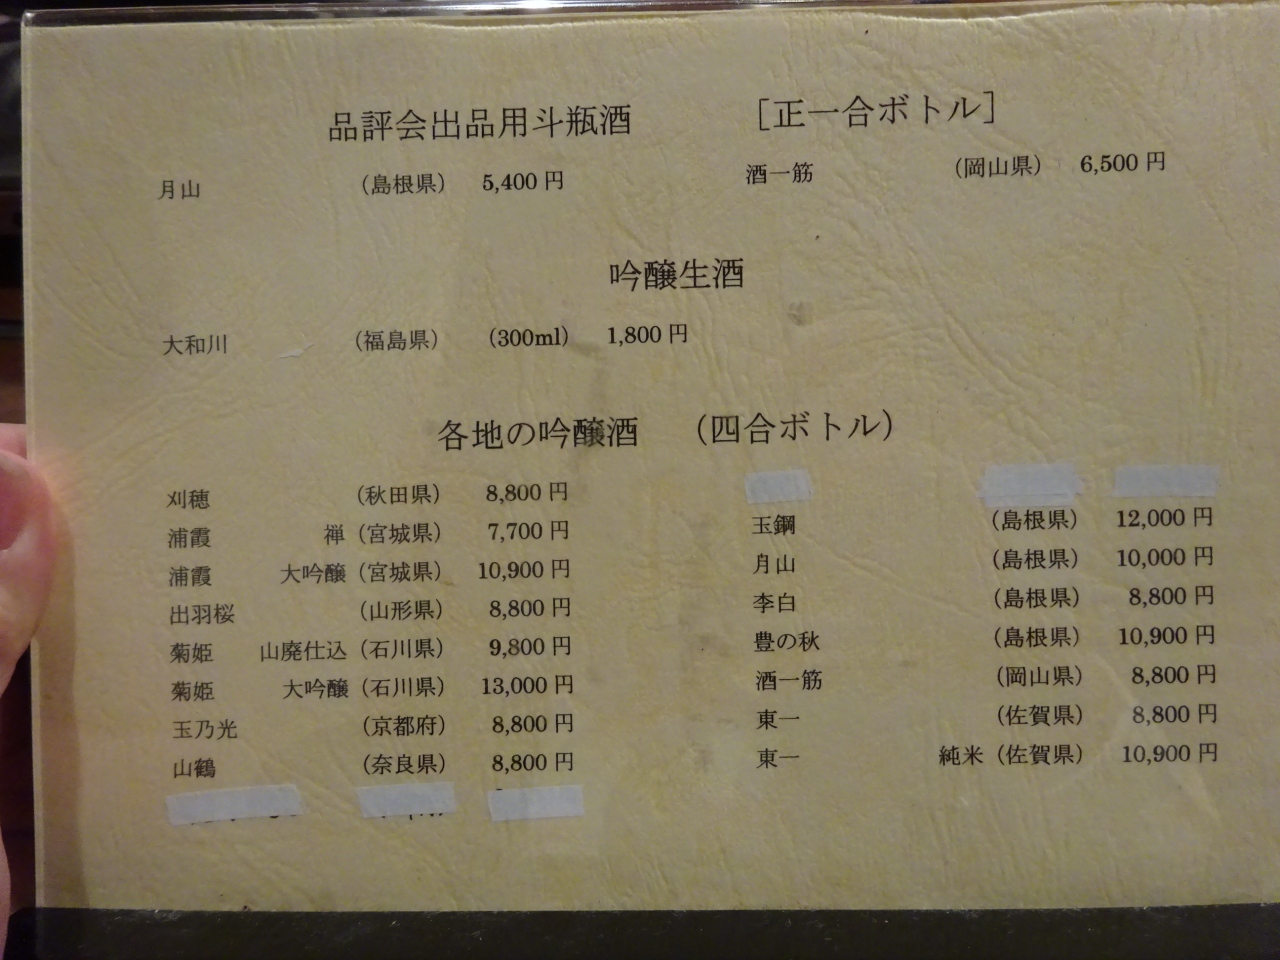 品評会出品用斗瓶酒 [正一合ボトル]
月山 (島根県) 5,400円 酒一筋 (岡山県) 6,500円
吟醸生酒
大和川 (福島県) (300ml) 1,800円
各地の吟醸酒 (四合ボトル)
刈穂 (秋田県) 8,800円
浦霞 禅 (宮城県) 7,700円
浦霞 大吟醸 (宮城県) 10,900円
出羽桜 (山形県) 8,800円
菊姫 山廃仕込 (石川県) 9,800円
菊姫 大吟醸 (石川県) 13,000円
玉乃光 (京都府) 8,800円
山鶴 (奈良県) 8,800円
玉鋼 (島根県) 12,000円
月山 (島根県) 10,000円
李白 (島根県) 8,800円
豊の秋 (島根県) 10,900円
酒一筋 (岡山県) 8,800円
東一 (佐賀県) 8,800円
東一 純米 (佐賀県) 10,900円